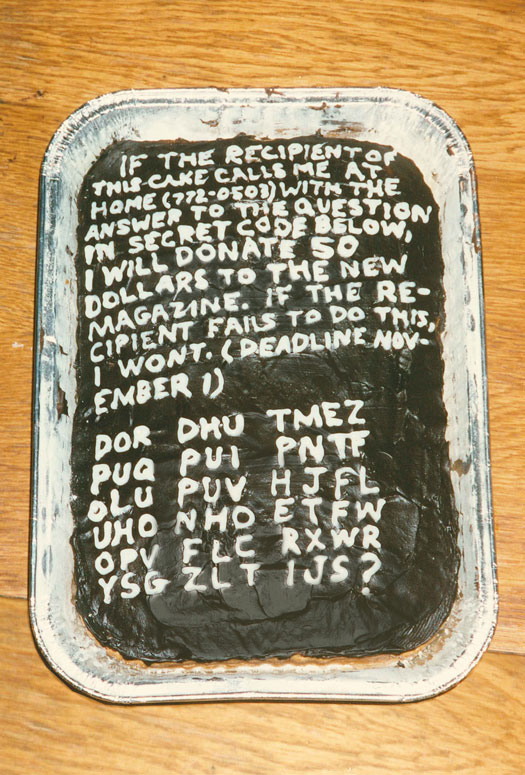 IF THE RECIPIENT OF
THIS CAKE CALLS ME AT
HOME (772-0503) WITH THE
ANSWER TO THE QUESTION
IN SECRET CODE BELOW,
I WILL DONATE 50
DOLLARS TO THE NEW
MAGAZINE. IF THE RE-
CIPIENT FAILS TO DO THIS,
I WONT. (DEADLINE NOV-
EMBER 1)
DOR DHU TMEZ
PUQ PUI PNTF
OLU PUV HJFL
UHO NHO ETFW
OPV FLC RXWR
YSG ZLT IJS?